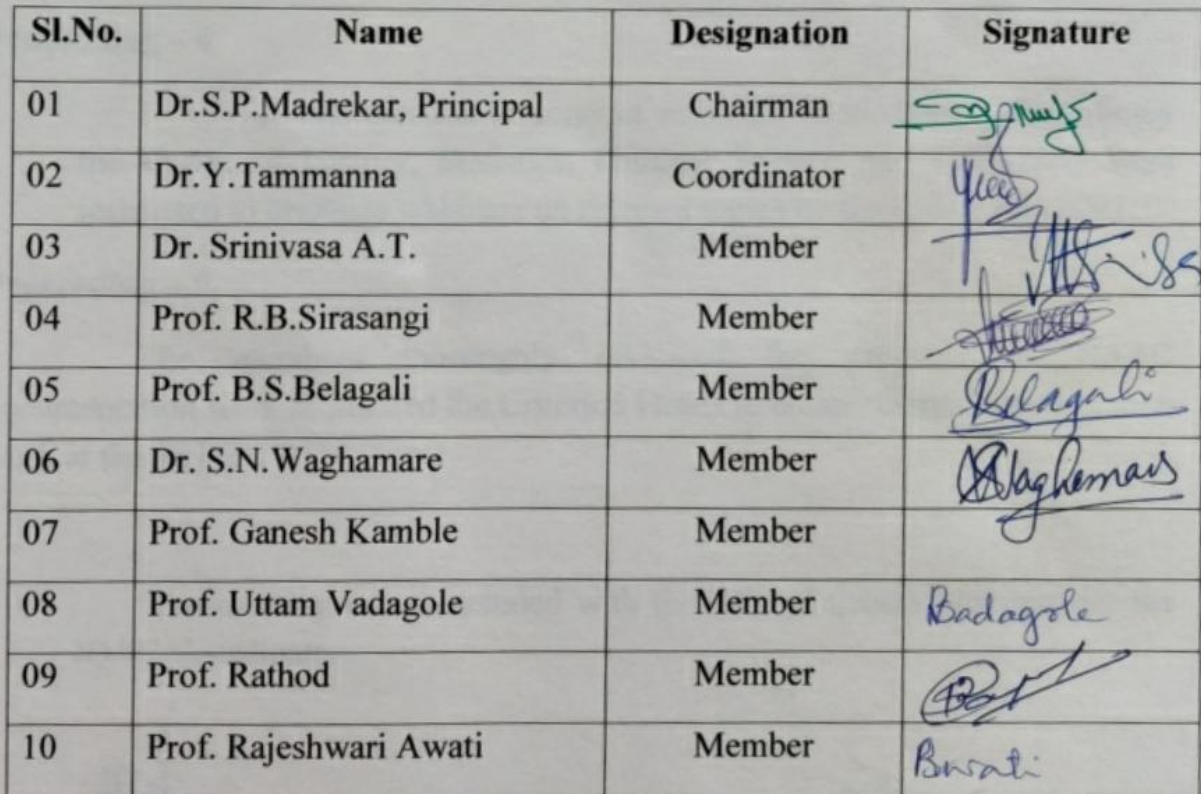 Sl.No. Name Designation Signature
01 Dr.S.P.Madrekar, Principal Chairman
02 Dr.Y.Tammanna Coordinator
03 Dr. Srinivasa A.T. Member
04 Prof. R.B.Sirasangi Member
05 Prof. B.S.Belagali Member Belagali
06 Dr. S.N.Waghamare Member
07 Prof. Ganesh Kamble Member
08 Prof. Uttam Vadagole Member Badagole
09 Prof. Rathod Member
10 Prof. Rajeshwari Awati Member